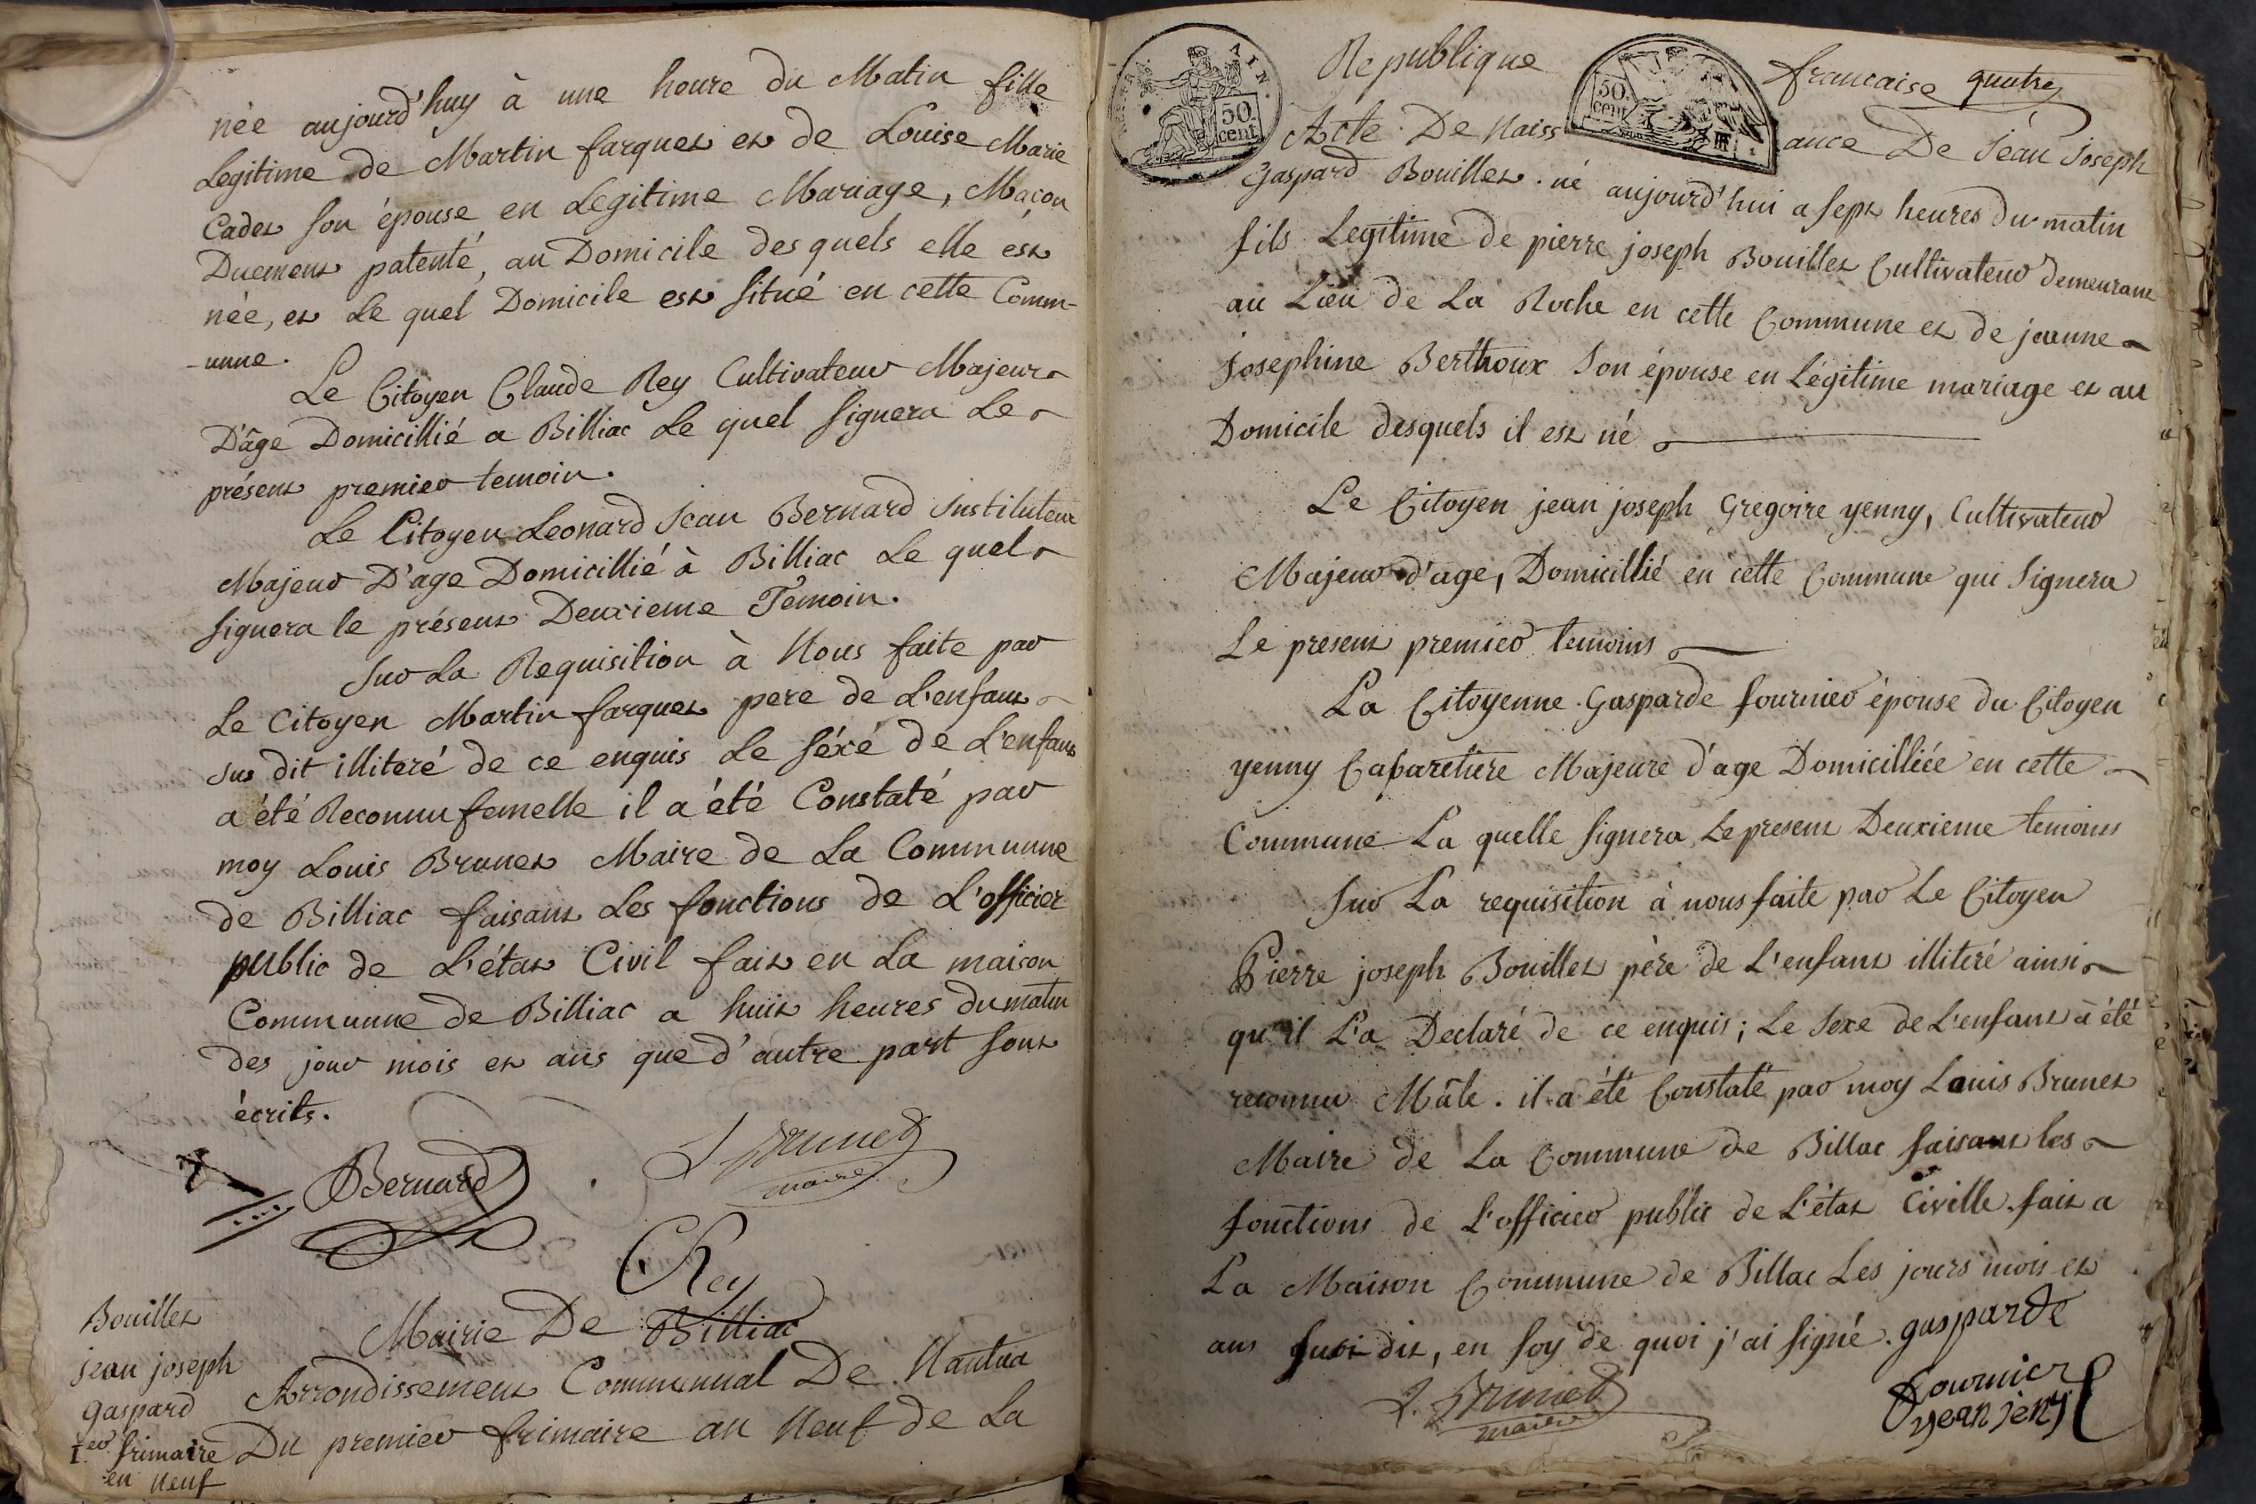 née aujourd'huy à une heure du Matin fille
Legitime de Martin farquet et de Louise Marie
Cadet son épouse en Legitime Mariage, Maçon
Duement patenté, au Domicile desquels elle est
née, et Le quel Domicile est situé en cette Comm-
-unne.
Le Citoyen Claude Rey Cultivateur Majeur
D'âge Domicillié a Billiac Le quel signera Le
présent premier temoin.
Le Citoyen Leonard Jean Bernard Instituteur
Majeur D'age Domicillié à Billiac Le quel
signera le présent Deuxieme Temoin.
Sur La Requisition à Nous faite par
Le Citoyen Martin farquet pere de L'enfant
sus dit illiteré de ce enquis Le séxé de L'enfant
a été Reconnu femelle il a été Constaté par
moy Louis Brunet Maire de La Communne
de Billiac faisant Les fonctions de L'officier
public de L'état Civil fait en La maison
Communne de Billiac a huit heures du matin
des jour mois et ans que d'autre part sont
écrits.
Bernard
L Brunet
maire
CRey
Bouillet
jean joseph
gaspard
1.er frimaire
en Neuf
Mairie De Billiac
Arrondissement Communal De Nantua
Du premier frimaire an Neuf de La
AIN.
50
cent.
Republique
50
cent.
francaise quatre
Acte De Naiss ance De Jean Joseph
Gaspard Bouillet. né aujourd'hui a sept heures du matin
fils Legitime de pierre joseph Bouillet Cultivateur demeurant
au Lieu de La Roche en cette Commune et de jeanne
Josephine Berthoux Son épouse en Légitime mariage et au
Domicile desquels il est né
Le Citoyen jean joseph Gregoire yenny, Cultivateur
Majeur d'age, Domicillié en cette Commune qui Signera
Le present premier temoins
La Citoyenne Gasparde fournier épouse du Citoyen
yenny Cabaretiere Majeure d'age Domicilliée en cette
Commune La quelle signera Le present Deuxieme temoins
Sur La requisition à nous faite par Le Citoyen
Pierre joseph Bouillet père de L'enfant illiteré ainsi
qu'il L'a Declaré de ce enquis; Le Sexe de L'enfant a été
reconnu Mâle. il a été Constaté par moy Louis Brunet
Maire de La Commune de Billac faisant les
fonctions de L'officier public de L'état Civille. fait a
La Maison Commune de Billac Les jours mois et
ans susdit, en foy de quoi j'ai signé. gasparde
L. Brunet
maire
fournier
yean jeny